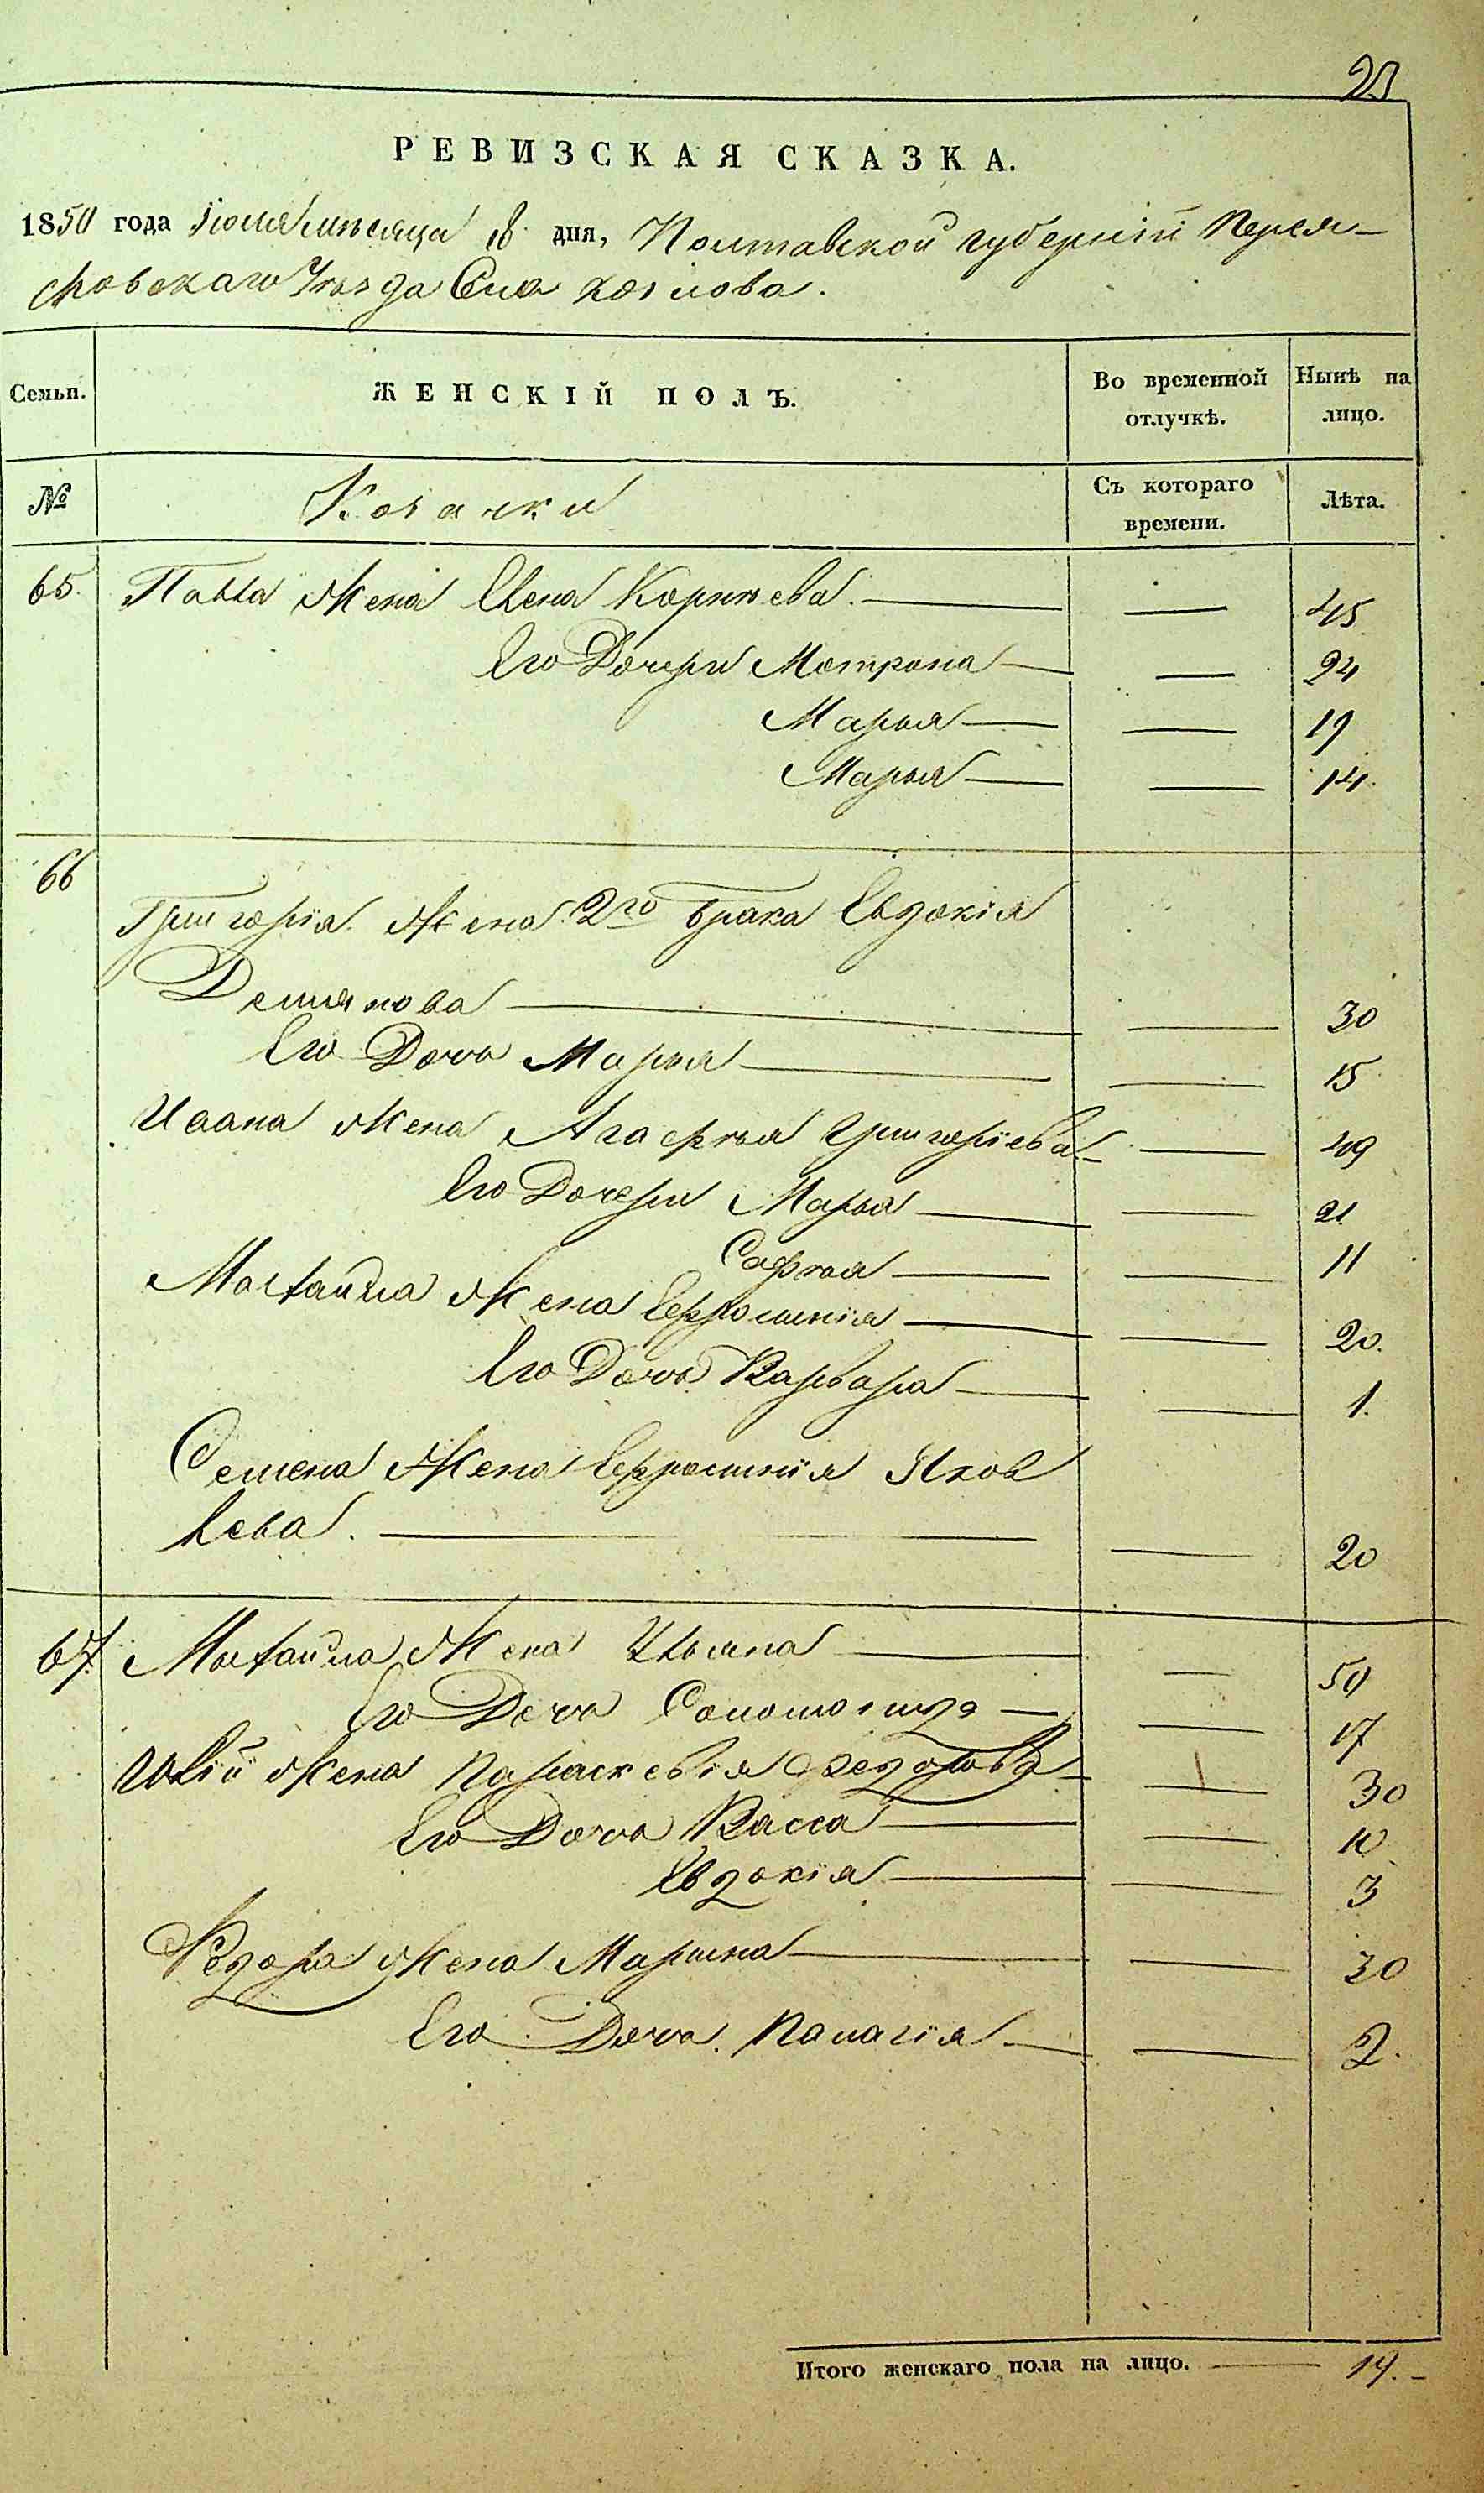 23
РЕВИЗСКАЯ СКАЗКА.
1850 года Іюля мѣсяца 18 дня, Полтавской губерніи Перея-
словскаго Уѣзда Села Козлова.
Семьи. ЖЕНСКІЙ ПОЛЪ. Во временной отлучкѣ. Нынѣ на лицо.
№ Козачки Съ котораго времени. Лѣта.
65. Павла Жена Елена Корнѣева. — — 45
Его Дочери Мотрона — — 24
Марья — — 19
Марья — — 14.
66
Григорія Жена 2го брака Евдокія
Демянова — — 30
Его Дочь Марья — — 15
Ивана Жена Агафья Григоріева — — 49
Его Дочери Марья — — 21
Софья — — 11
Михайла Жена Ефросинія — — 20.
Его Дочь Варвара — — 1.
Семена Жена Ефросинія Яков
лева. — — 20
67. Михайла Жена Ульяна — — 50
Его Дочь Соломонида — — 17
Жена Параскевія Федорова — — 30
Его Дочь Васса — — 10
Евдокія — — 3
Федора Жена Марина — — 30
Его Дочь Палагія — — 2.
Итого женскаго пола на лицо. — 19. –